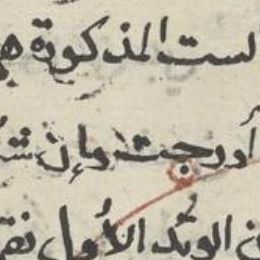 الست المذكورة هي
أو رجت وإن شئ
ن الوتد الأول نقر